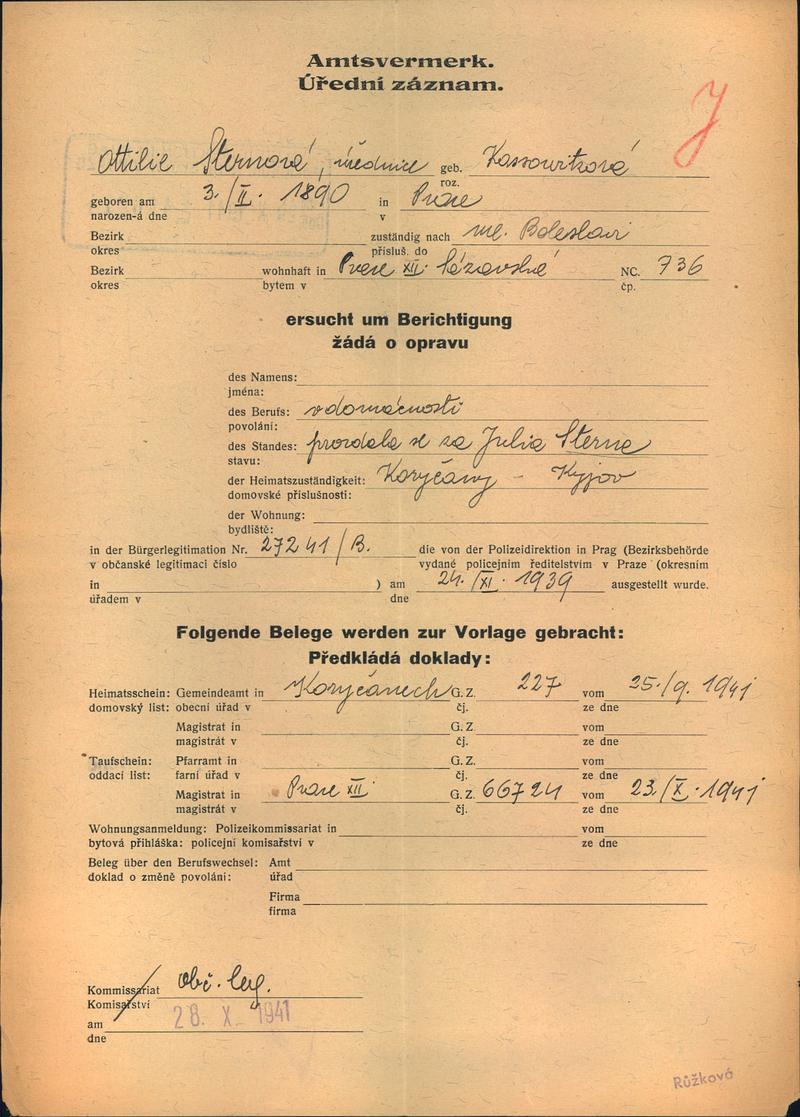 Amtsvermerk.
Úřední záznam.
J
Ottilie Sternová, úřednice geb. Kossowitzová
roz.
geboren am 3./II. 1890 in Praze
narozen-á dne v
Bezirk zuständig nach ml. Boleslavi
okres přísluš. do
Bezirk wohnhaft in Praze XII. Sázavská NC. 736
okres bytem v čp.
ersucht um Berichtigung
žádá o opravu
des Namens:
jména:
des Berufs: v domácnosti
povolání:
des Standes: provdala se za Julia Sterna
stavu:
der Heimatszuständigkeit: Koryčany - Kyjov
domovské příslušnosti:
der Wohnung:
bydliště:
in der Bürgerlegitimation Nr. 27241/B. die von der Polizeidirektion in Prag (Bezirksbehörde
v občanské legitimaci číslo vydané policejním ředitelstvím v Praze (okresním
in ) am 24./XI. 1939 ausgestellt wurde.
úřadem v dne
Folgende Belege werden zur Vorlage gebracht:
Předkládá doklady:
Heimatsschein: Gemeindeamt in Koryčanech G. Z. 227 vom 25./9. 1941
domovský list: obecní úřad v čj. ze dne
Magistrat in G. Z. vom
magistrát v čj. ze dne
Taufschein: Pfarramt in G. Z. vom
oddací list: farní úřad v čj. ze dne
Magistrat in Praze XII. G. Z. 66724 vom 23./X. 1941
magistrát v čj. ze dne
Wohnungsanmeldung: Polizeikommissariat in vom
bytová přihláška: policejní komisařství v ze dne
Beleg über den Berufswechsel: Amt
doklad o změně povolání: úřad
Firma
firma
Kommissariat obč. leg.
Komisařství
am 28. X. 1941
dne
Růžková